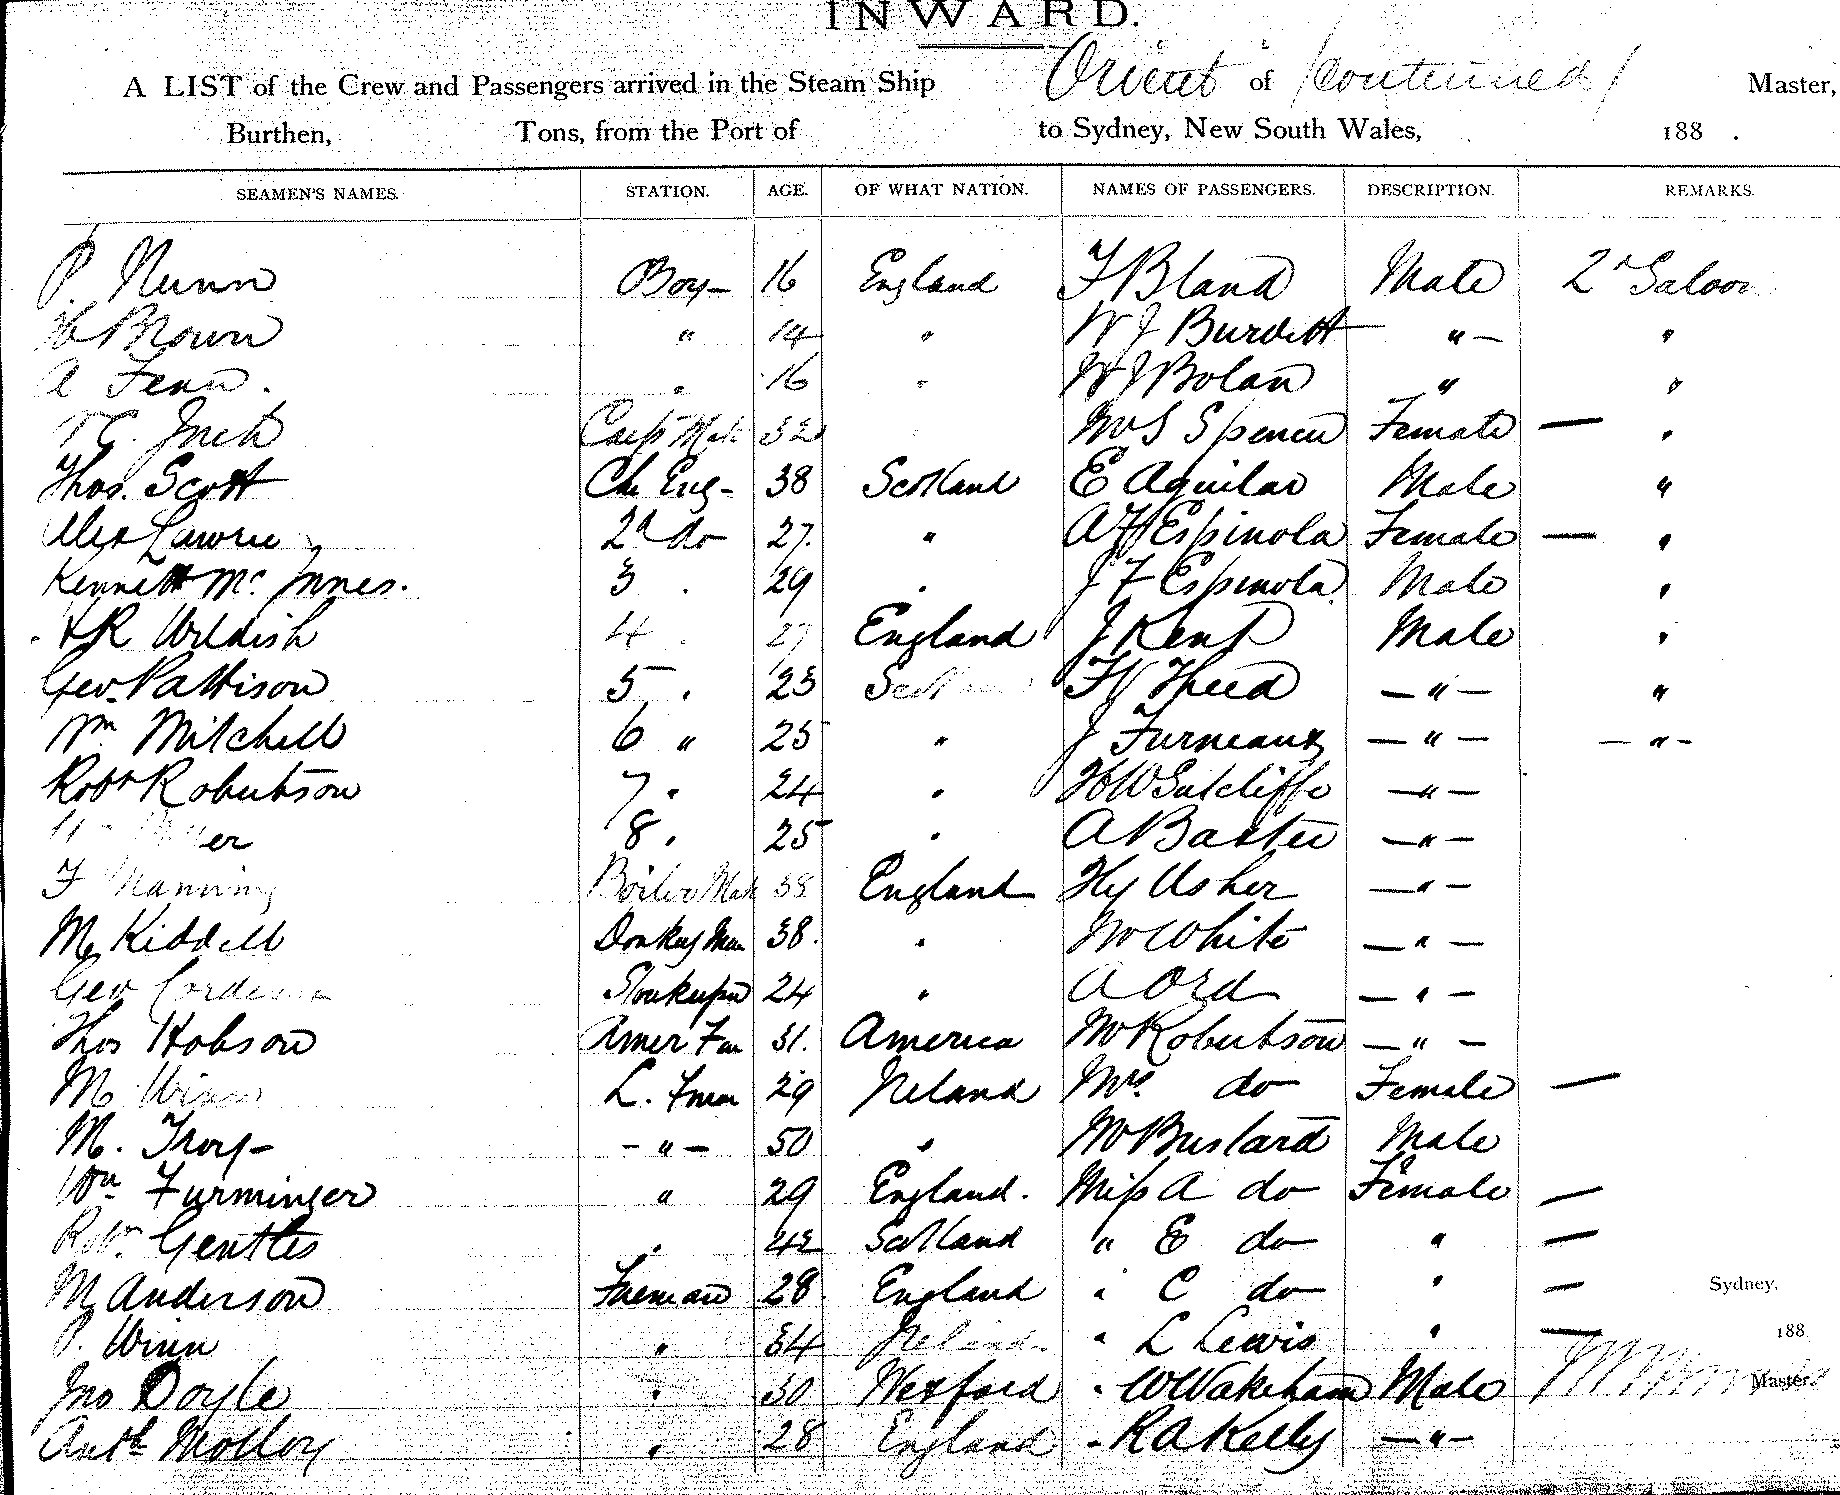 INWARD.
A LIST of the Crew and Passengers arrived in the Steam Ship Orient of (continued) Master,
Burthen, Tons, from the Port of to Sydney, New South Wales, 188 .
SEAMEN'S NAMES. STATION. AGE. OF WHAT NATION. NAMES OF PASSENGERS. DESCRIPTION. REMARKS.
P. Nunn Boy 16 England F Bland Male 2d Saloon
H Brown " 14 " W J Burdett " — "
A Fenn. " 16 " W J Bolan " "
T G. Inch Carps Mate 32 Mrs Spencer Female — "
Thos. Scott Ch Eng 38 Scotland E Aguilar Male "
Alex Lawrie 2d do 27. " A F Espinola Female — "
Kenneth Mc Innes. 3 " 29 " J F Espinola Male "
H R Wildish 4 " 27 England J Kent Male "
Geo. Pattison 5 " 23 Scotland F Theed — " — "
Wm Mitchell 6 " 25 " J Furneaux — " — — " —
Robt Robertson 7 " 24 " H W Sutcliffe — " —
8 " 25 " A Baxter — " —
F Manning Boiler Mak 38 England Hy Usher — " —
M Kiddell Donkey Man 38. " W White — " —
Geo Storekeeper 24 " A Ord — " —
Thos Hobson 31. America W Robertson — " —
M Winn L. Fman 29 Ireland Mrs do Female —
M. Troy — " — 50 " W Bustard Male
Wm Furminger " 29 England. Miss A do Female —
Robt Gentles " 42 Scotland " E do " —
M Anderson Fireman 28 England " C do " — Sydney,
P. Winn " 34 Ireland " L Lewis " — 188
Jno Doyle " 30 Wexford " W Wakeham Male Master.
Anth Molloy " 28 England " R A Kelly — " —